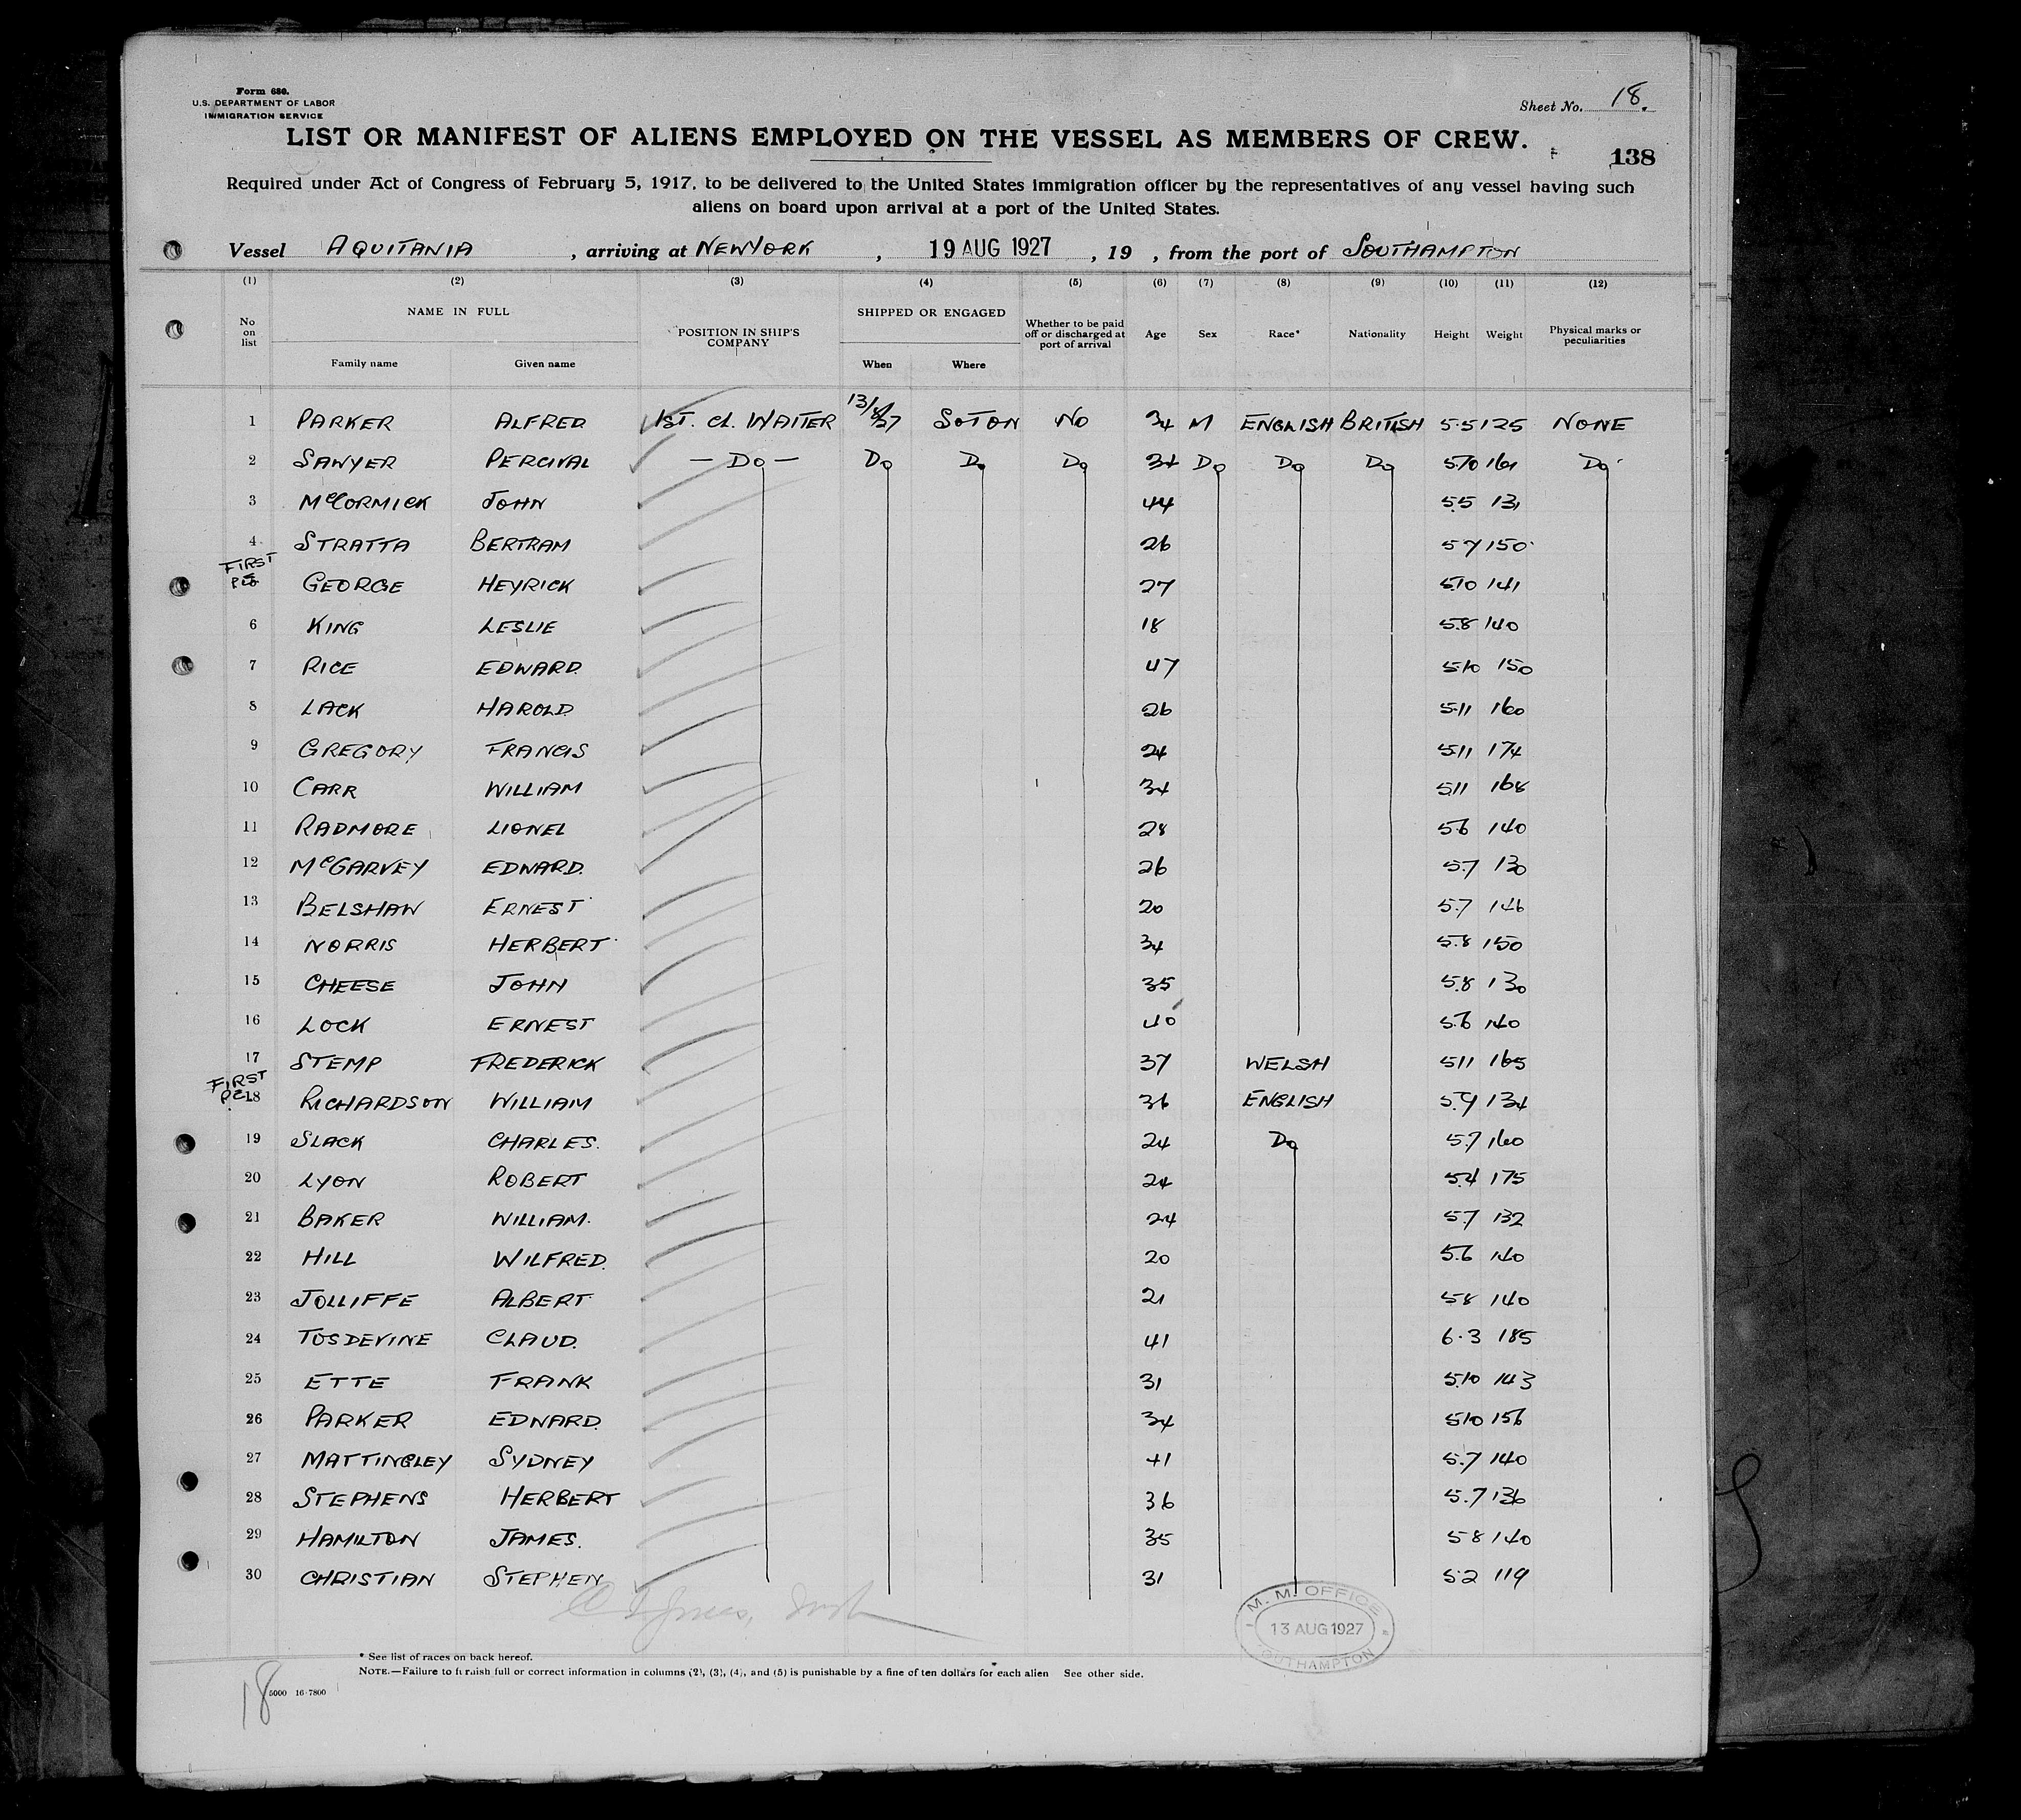 Form 680.
U.S. DEPARTMENT OF LABOR
IMMIGRATION SERVICE
Sheet No. 18.
LIST OR MANIFEST OF ALIENS EMPLOYED ON THE VESSEL AS MEMBERS OF CREW.
138
Required under Act of Congress of February 5, 1917, to be delivered to the United States immigration officer by the representatives of any vessel having such
aliens on board upon arrival at a port of the United States.
Vessel AQUITANIA , arriving at NEWYORK , 19 AUG 1927 , 19 , from the port of SOUTHAMPTON
(1) (2) (3) (4) (5) (6) (7) (8) (9) (10) (11) (12)
No on list NAME IN FULL POSITION IN SHIP'S COMPANY SHIPPED OR ENGAGED Whether to be paid off or discharged at port of arrival Age Sex Race* Nationality Height Weight Physical marks or peculiarities
Family name Given name When Where
1 PARKER ALFRED 1ST. Cl. WAITER 13/8/27 SOTON NO 34 M ENGLISH BRITISH 5.5 125 NONE
2 SAWYER PERCIVAL — Do — Do Do Do 34 Do Do Do 5.10 161 Do
3 McCORMICK JOHN 44 5.5 131
4 STRATTA BERTRAM 26 5.7 150
FIRST
GEORGE HEYRICK 27 5.10 141
6 KING LESLIE 18 5.8 140
7 RICE EDWARD. 47 5.10 150
8 LACK HAROLD 26 5.11 160
9 GREGORY FRANCIS 24 5.11 174
10 CARR WILLIAM 34 5.11 168
11 RADMORE LIONEL 28 5.6 140
12 McGARVEY EDWARD. 26 5.7 130
13 BELSHAW ERNEST 20 5.7 146
14 NORRIS HERBERT 34 5.8 150
15 CHEESE JOHN 35 5.8 130
16 LOCK ERNEST 40 5.6 140
17 STEMP FREDERICK 37 WELSH 5.11 165
FIRST
18 RICHARDSON WILLIAM 36 ENGLISH 5.9 134
19 SLACK CHARLES. 24 Do 5.7 160
20 LYON ROBERT 24 5.4 175
21 BAKER WILLIAM. 24 5.7 132
22 HILL WILFRED. 20 5.6 140
23 JOLLIFFE ALBERT 21 5.8 140
24 TOSDEVINE CLAUD. 41 6.3 185
25 ETTE FRANK 31 5.10 143
26 PARKER EDWARD. 34 5.10 156
27 MATTINGLEY SYDNEY 41 5.7 140
28 STEPHENS HERBERT 36 5.7 136
29 HAMILTON JAMES. 35 5.8 140
30 CHRISTIAN STEPHEN 31 5.2 119
M. M. OFFICE
13 AUG 1927
SOUTHAMPTON
* See list of races on back hereof.
NOTE.—Failure to furnish full or correct information in columns (2), (3), (4), and (5) is punishable by a fine of ten dollars for each alien See other side.
18 5000 16-7800